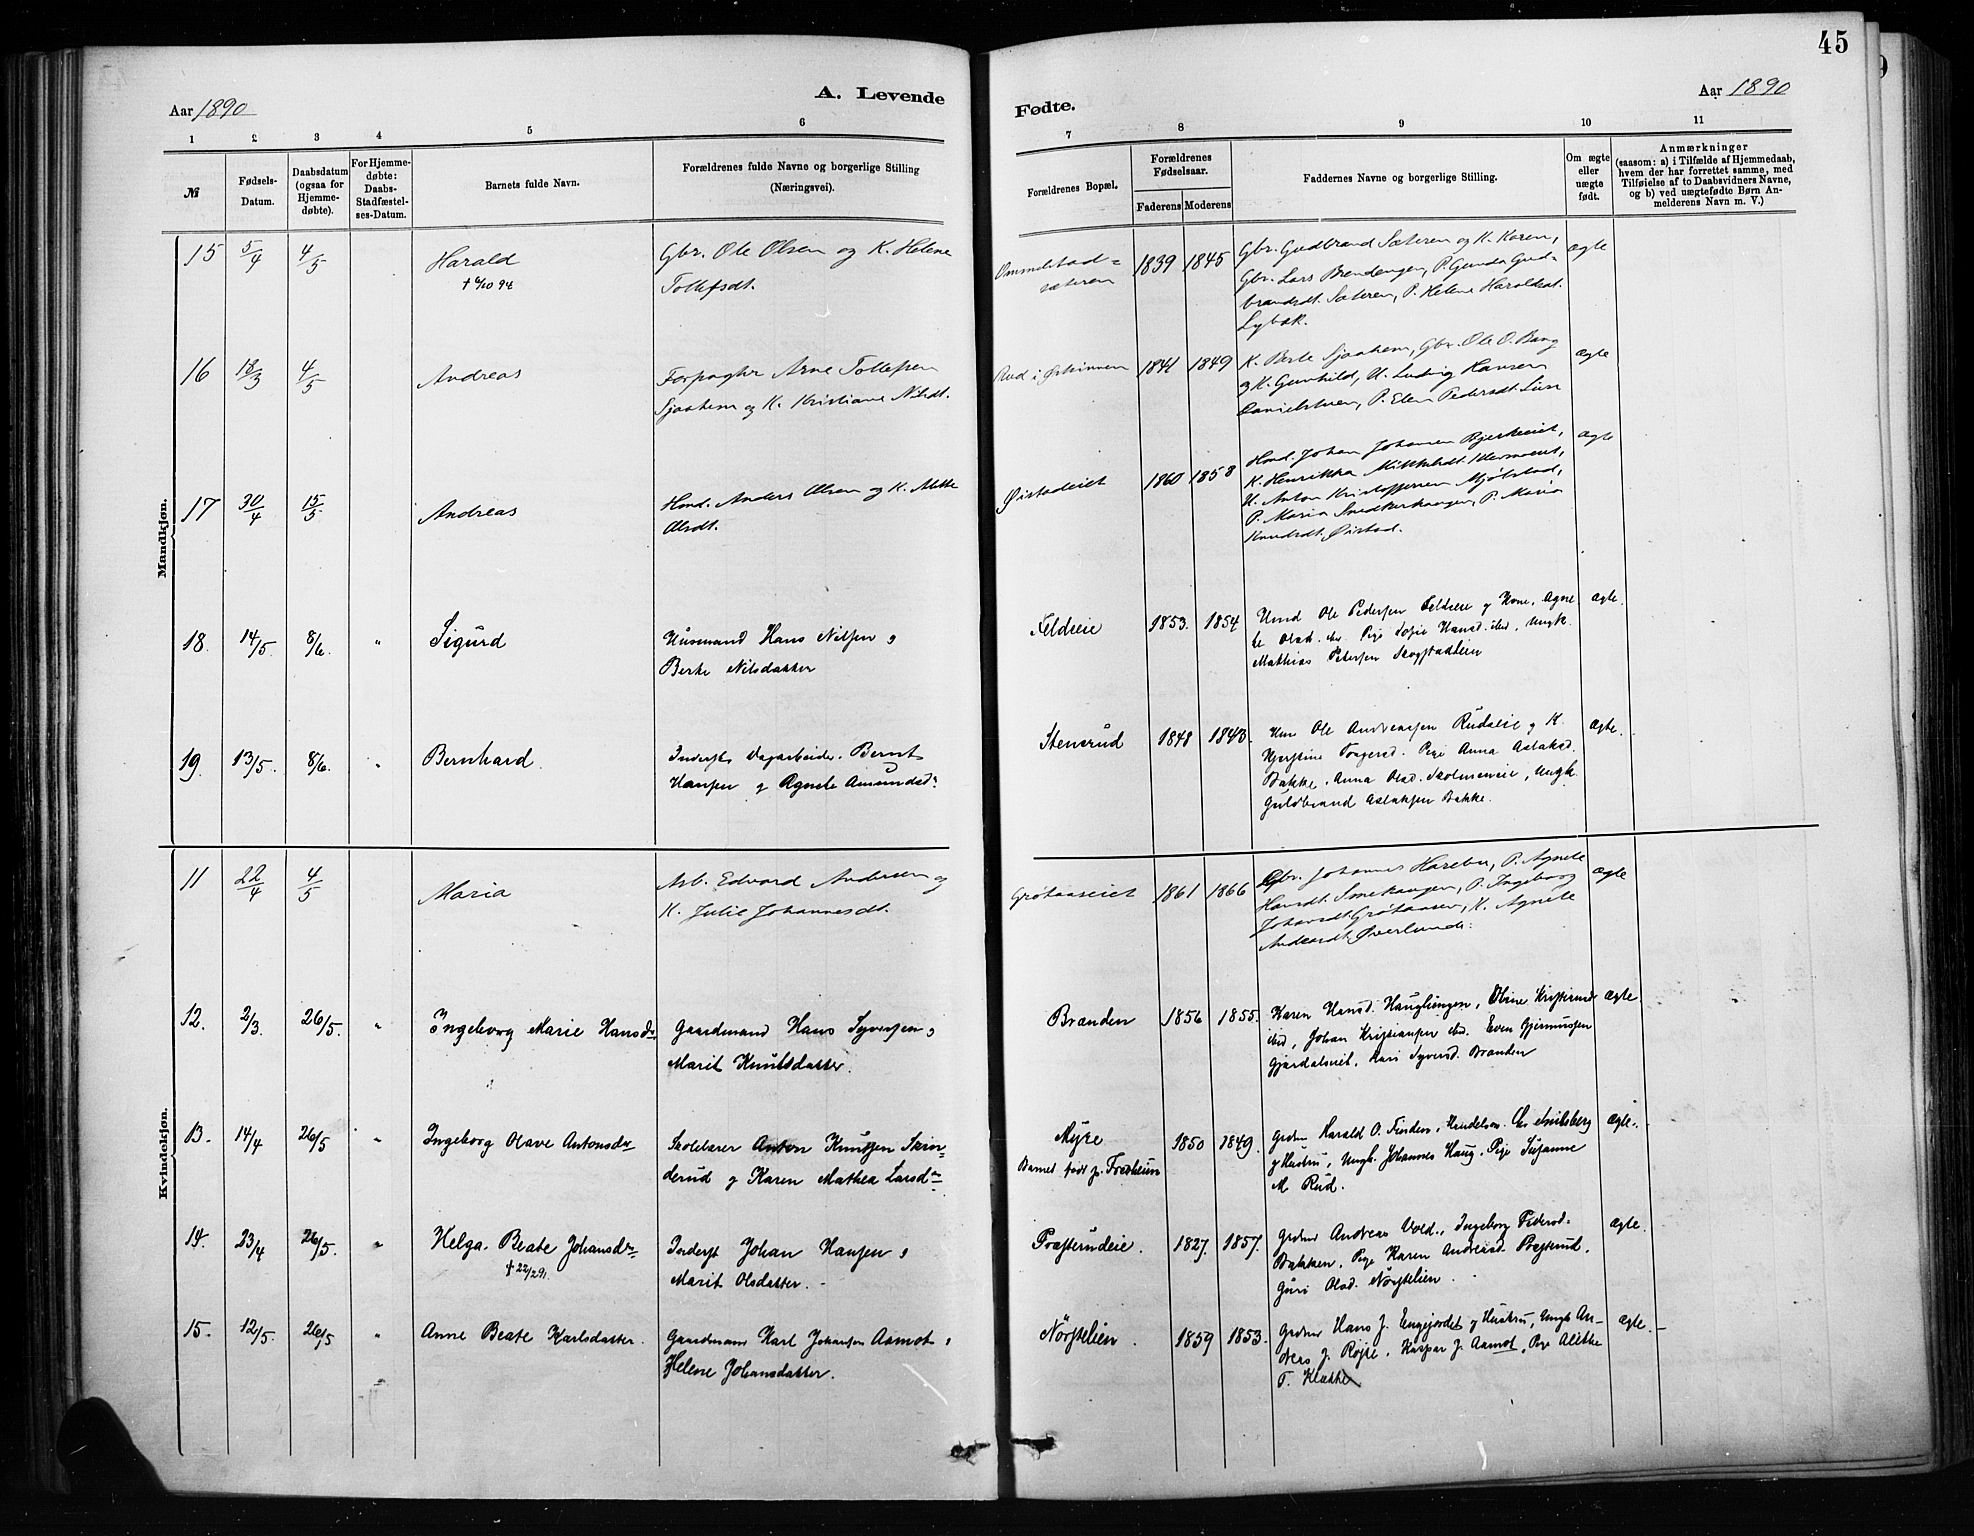 45
Aar 1890
A. Levende
Fødte.
Aar 1890
1 2 3 4 5 6 7 8 9 10 11
№
Fødsels-Datum.
Daabsdatum (ogsaa for Hjemmedøbte).
For Hjemmedøbte: Daabs-Stadfæstelses-Datum.
Barnets fulde Navn.
Forældrenes fulde Navne og borgerlige Stilling
(Næringsvei).
Forældrenes Bopæl.
Forældrenes Fødselsaar.
Faderens Moderens
Faddernes Navne og borgerlige Stilling.
Om ægte eller uægte født.
Anmærkninger
(saasom: a) i Tilfælde af Hjemmedaab,
hvem der har forrettet samme, med
Tilføielse af to Daabsvidners Navne,
og b) ved uægtefødte Børn Anmelderens Navn m. V.)
Mandkjøn.
15 5/4 4/5 Harald Gbr. Ole Olsen og K. Helene
Tollefsdt.
Ommelstadsæteren 1839 1845 Gbr. Gudbrand Sæteren og K. Karen,
Gbr. Lars Brendengen, P. Gunda Gudbrandsdt. Sæteren, P. Helene Haraldsdt.
Lybæk.
ægte
16 18/3 4/5 Andreas Forpagter Arne Tollefsen
Sjaahem og K. Kristiane Nilsdt.
Rud i 1841 1849 K. Berte Sjaahem, Gbr. Ole O. Bang
og K. Gunhild, U. Ludvig Hansen
Danielstuen, P. Elen Pedersdt. Lien
ægte
17 30/4 15/5 Andreas Hmd. Anders Olsen og K. Mette
Olsdt.
Øistadeiet 1860 1858 Hmd. Johan Johansen Bjerkeeiet,
K. Henrikka Mikkelsdt.
U. Anton Kristoffersen Mjølstad,
P. Maria Snedkerhaugen, P. Maria
Knudsdt. Øistad.
ægte
18. 14/5. 8/6. " Sigurd Husmand Hans Nilsen &
Berte Nilsdatter
Feldeeie 1853. 1854 Hmd Ole Pedersen Feldeeie og Kone, Agnete Olsd. ibd. Pige Sofie Hansd. ibid, Ungk.
Mathias Petersen Skogstadlien
ægte.
19. 13/5. 8/6. " Bernhard. Inderst Dagarbeider. Bernt
Hansen og Agnete Amundsdr
Stensrud 1848 1843. Hm Ole Andreassen Rudseie og K.
Torgersd. Pige Anna Aslaksd.
Bakke. Anna Olsd. , Ungk.
Guldbrand Aslaksen Bakke.
ægte.
Kvindekjøn.
11 22/4 4/5 Maria Arb. Edvard Andersen og
K. Julie Johannesdt.
Grøtaaseiet 1861 1866 Gbr. Johannes Harebu, P. Agnete
Hansdt. Smehaugen, P. Ingeborg
Johansdt. Grøtaasen, K. Agnete
Andersdt. Øverlund.
ægte
12. 2/3. 26/5. " Ingeborg Marie Hansdr Gaardmand Hans Syversen &
Marit Knutsdatter.
Brænden 1856 1855. Karen Hansd. Hauglungen, Oline Kristiansd
ibid, Johan Kristiansen ibd. Even Gjermundsen
Gjærdalseiet, Kari Syversd. Brænden
ægte
13. 14/4 26/5 " Ingeborg Olave Antonsdr Skolelærer Anton Knutsen Skinderud og Karen Mathea Larsdr
Myre
Barnet født p. Fredheim 1850 1849. Grdm Harald O. Finden,
og Hustru, Ungk. Johannes Haug. Pige Susanne
M Rud.
ægte.
14. 23/4 26/5. " Helga Beate Johansdr
† 22/2 91.
Inderst Johan Hansen &
Marit Olsdatter.
Præsterudeie. 1827. 1857. Grdm Andreas Vold., Ingeborg
Bakken, Pige Karen Andreasd. Præsterud,
Guri Olsd. Nørstelien.
ægte.
15. 12/5. 26/5 " Anne Beate Karlsdatter. Gaardmand Karl Johansen Aamot &
Helene Johansdatter.
Nørstelien. 1859 1853. Grdm Hans J. Engejordet og Hustru, Ungk Anders J. Røise, Kaspar J. Aamot, Pige Alethe
T. Klætte
ægte.